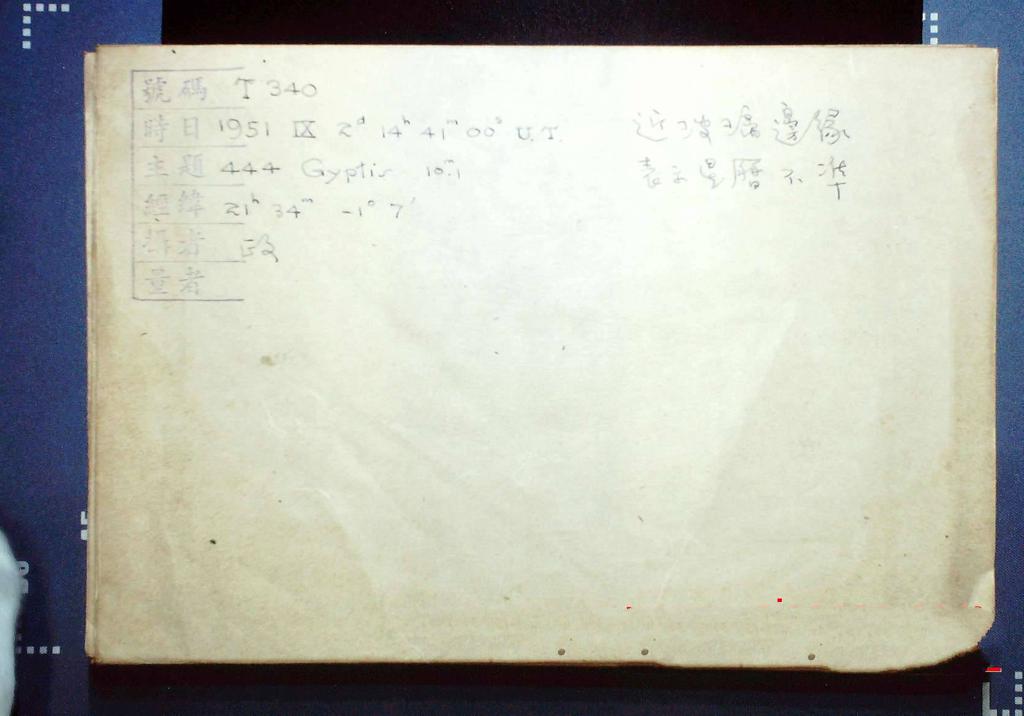 號碼 T 340
時日 1951 IX 2ᵈ 14ʰ 41ᵐ 00ˢ U.T.
主題 444 Gyptis 10ᵐ.1
經緯 21ʰ 34ᵐ -1° 7′
拍者 政
量者
近玻璃邊緣
表示星曆不準